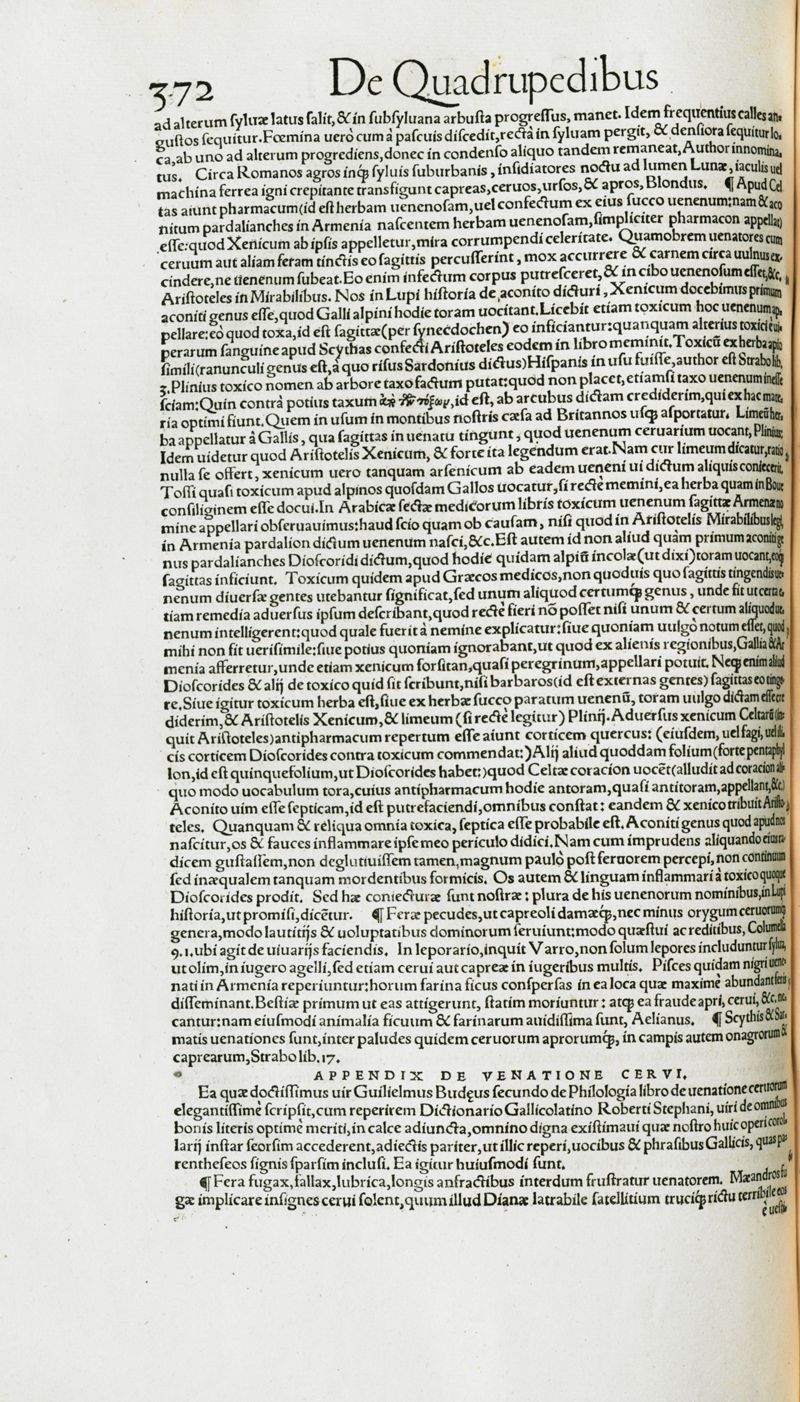 372 De Quadrupedibus
ad alterum ſyluæ latus ſalit, & in ſubſyluana arbuſta progreſſus, manet. Idem frequentius calles an-
guſtos ſequitur. Fœmina uerò cum à paſcuis diſcedit, rectà in ſyluam pergit, & denſiora ſequitur lo-
ca, ab uno ad alterum progrediens, donec in condenſo aliquo tandem remaneat, Author innomina-
tus. Circa Romanos agros inq́ꝫ ſyluis ſuburbanis, inſidiatores noctu ad lumen Lunæ, iaculis uel
machina ferrea igni crepitante transfigunt capreas, ceruos, urſos, & apros, Blondus. ¶ Apud Cel
tas aiunt pharmacum (id eſt herbam uenenoſam, uel confectum ex eius ſucco uenenum: nam & aco
nitum pardalianches in Armenia naſcentem herbam uenenoſam, ſimpliciter pharmacon appellat)
eſſe: quod Xenicum ab ipſis appelletur, mira corrumpendi celeritate. Quamobrem uenatores cum
ceruum aut aliam feram tinctis eo ſagittis percuſſerint, mox accurrere & carnem circa uulnus ex-
cindere, ne uenenum ſubeat. Eo enim infectum corpus putreſceret, & in cibo uenenoſum eſſet, &c.
Ariſtoteles in Mirabilibus. Nos in Lupi hiſtoria de aconito dicturi, Xenicum docebimus primum
aconiti genus eſſe, quod Galli alpini hodie toram uocitant. Licebit etiam toxicum hoc uenenum ap-
pellare: eò quod toxa, id eſt ſagittæ (per ſynecdochen) eo inficiantur: quanquam alterius toxici è ui-
perarum ſanguine apud Scythas confecti Ariſtoteles eodem in libro meminit. Toxicū ex herba apio
ſimili (ranunculi genus eſt, à quo riſus Sardonius dictus) Hiſpanis in uſu fuiſſe, author eſt Strabo lib.
3. Plinius toxico nomen ab arbore taxo factum putat: quod non placet, etiamſi taxo uenenum ineſſe
ſciam: Quin contrà potius taxum ἀπὸ τῶν τόξων, id eſt, ab arcubus dictam crediderim, qui ex hac mate-
ria optimi fiunt. Quem in uſum in montibus noſtris cæſa ad Britannos uſqꝫ aſportatur. Limeū her-
ba appellatur à Gallis, qua ſagittas in uenatu tingunt, quod uenenum ceruarium uocant, Plinius:
Idem uidetur quod Ariſtotelis Xenicum, & forte ita legendum erat. Nam cur limeum dicatur, ratio
nulla ſe offert, xenicum uero tanquam arſenicum ab eadem ueneni ui dictum aliquis coniecerit.
Toſſi quaſi toxicum apud alpinos quoſdam Gallos uocatur, ſi recte memini, ea herba quam in Boue
conſiliginem eſſe docui. In Arabicæ ſectæ medicorum libris toxicum uenenum ſagittæ Armenæ no
mine appellari obſeruauimus: haud ſcio quam ob cauſam, niſi quod in Ariſtotelis Mirabilibus legi,
in Armenia pardalion dictum uenenum naſci, &c. Eſt autem id non aliud quàm primum aconiti ge
nus pardalianches Dioſcoridi dictum, quod hodie quidam alpiū incolæ (ut dixi) toram uocant, eoqꝫ
ſagittas inficiunt. Toxicum quidem apud Græcos medicos, non quoduis quo ſagittis tingendis ue-
nenum diuerſæ gentes utebantur ſignificat, ſed unum aliquod certumq́ꝫ genus, unde fit ut certa e-
tiam remedia aduerſus ipſum deſcribant, quod recte fieri nō poſſet niſi unum & certum aliquod ue-
nenum intelligerent: quod quale fuerit à nemine explicatur: ſiue quoniam uulgò notum eſſet, quod
mihi non fit ueriſimile: ſiue potius quoniam ignorabant, ut quod ex alienis regionibus, Gallia & Ar
menia afferretur, unde etiam xenicum forſitan, quaſi peregrinum, appellari potuit. Neqꝫ enim aliud
Dioſcorides & alij de toxico quid ſit ſcribunt, niſi barbaros (id eſt externas gentes) ſagittas eo tinge-
re. Siue igitur toxicum herba eſt, ſiue ex herbæ ſucco paratum uenenū, toram uulgo dictam eſſe cre
diderim, & Ariſtotelis Xenicum, & limeum (ſi recte legitur) Plinij. Aduerſus xenicum Celtarū (in-
quit Ariſtoteles) antipharmacum repertum eſſe aiunt corticem quercus: (eiuſdem, uel fagi, uel ili-
cis corticem Dioſcorides contra toxicum commendat:) Alij aliud quoddam folium (forte pentaphyl
lon, id eſt quinquefolium, ut Dioſcorides habet:) quod Celtæ coracion uocēt (alludit ad coracion ali-
quo modo uocabulum tora, cuius antipharmacum hodie antoram, quaſi antitoram, appellant, &c.)
Aconito uim eſſe ſepticam, id eſt putrefaciendi, omnibus conſtat: eandem & xenico tribuit Ariſto-
teles. Quanquam & reliqua omnia toxica, ſeptica eſſe probabile eſt. Aconiti genus quod apud nos
naſcitur, os & fauces inflammare ipſe meo periculo didici. Nam cum imprudens aliquando eius ra-
dicem guſtaſſem, non deglutiuiſſem tamen, magnum paulò poſt feruorem percepi, non continuum
ſed inæqualem tanquam mordentibus formicis. Os autem & linguam inflammari à toxico quoque
Dioſcorides prodit. Sed hæ coniecturæ ſunt noſtræ: plura de his uenenorum nominibus, in Lupi
hiſtoria, ut promiſi, dicētur. ¶ Feræ pecudes, ut capreoli damæq́ꝫ, nec minus orygum ceruorumq́ꝫ
genera, modo lautitijs & uoluptatibus dominorum ſeruiunt: modo quæſtui ac reditibus, Columella
9. 1. ubi agit de uiuarijs faciendis. In leporario, inquit Varro, non ſolum lepores includuntur ſylua,
ut olim, in iugero agelli, ſed etiam cerui aut capreæ in iugeribus multis. Piſces quidam nigri uene-
nati in Armenia reperiuntur: horum farina ficus conſperſas in ea loca quæ maximè abundant feris,
diſſeminant. Beſtiæ primum ut eas attigerunt, ſtatim moriuntur: atqꝫ ea fraude apri, cerui, &c. ne-
cantur: nam eiuſmodi animalia ficuum & farinarum auidiſſima ſunt, Aelianus. ¶ Scythis & Sar-
matis uenationes ſunt, inter paludes quidem ceruorum aprorumq́ꝫ, in campis autem onagrorum &
caprearum, Strabo lib. 17.
APPENDIX DE VENATIONE CERVI.
Ea quæ doctiſſimus uir Guilielmus Budęus ſecundo de Philologia libro de uenatione ceruorum
elegantiſſimè ſcripſit, cum reperirem Dictionario Gallicolatino Roberti Stephani, uiri de omnibus
bonis literis optimè meriti, in calce adiuncta, omnino digna exiſtimaui quæ noſtro huic operi corol-
larij inſtar ſeorſim accederent, adiectis pariter, ut illic reperi, uocibus & phraſibus Gallicis, quas pa-
rentheſeos ſignis ſparſim incluſi. Ea igitur huiuſmodi ſunt.
¶ Fera fugax, fallax, lubrica, longis anfractibus interdum fruſtratur uenatorem. Mæandros fu
gæ implicare inſignes cerui ſolent, quum illud Dianæ latrabile ſatellitium truciq́ꝫ rictu terribile eos
è ueſti-